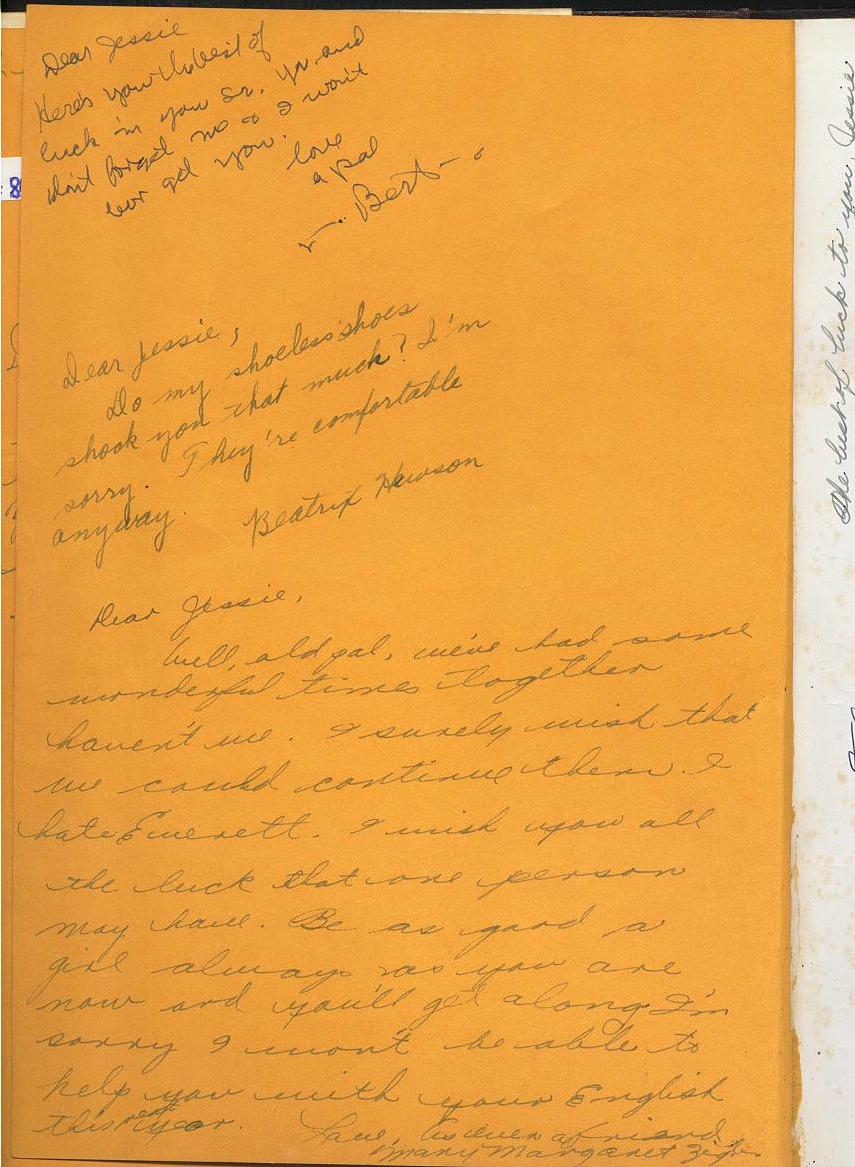 Dear Jessie
Here's you the best of
luck in you Sr. Yr. and
don't forget me & I won't
for get you.
love
a pal
Bert
Dear Jessie,
Do my shoeless shoes
shook you that much? I'm
sorry. They're comfortable
anyway.
Beatrix Hewson
Dear Jessie,
Well, old pal, we've had some
wonderful times together
haven't we. I surely wish that
we could continue them. I
hate Everett. I wish you all
the luck that one person
may have. Be as good a
girl always as you are
now and you'll get along. I'm
sorry I won't be able to
help you with your English
this next year.
Love, As ever a friend
Mary Margaret
The best of luck to you, Jessie
8